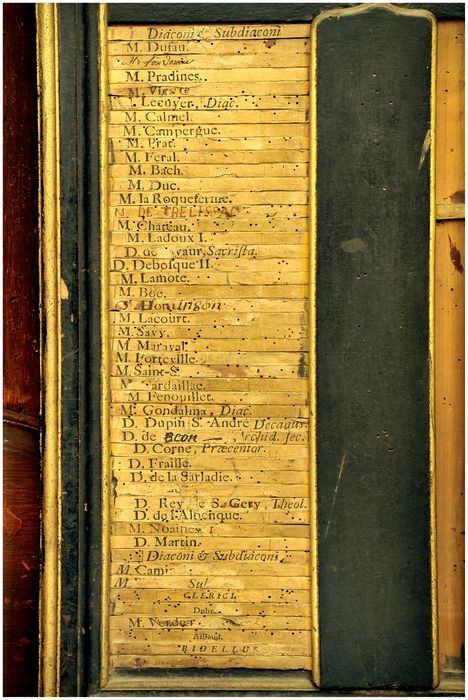 Diaconi & Subdiaconi
M. Dufau.
M. Pradines.
M.
Lecoyer, Diac.
M. Calmel.
M. Campergue.
M. Prat.
M. Feral.
M. Bach.
M. Duc.
M. la Roqueferme.
M. DE
M. Chateau.
M. Ladoux I.
D. de vaur, Sacrista.
D. Debosque II.
M. Lamote.
M. Böe.
M. Lacourt.
M. Savy.
M. Maraval.
M. Porteville.
M. Saint-S.
M. ardaillac.
M. Fenouillet.
M. Gondalma, Diac.
D. Dupin S. André Decanus.
D. de rchid. sec.
D. Corne, Præcentor.
D. Fraisse.
D. de la Sarladie.
D. Rey de S. Gery, Theol.
D. de
M.
D. Martin.
Diaconi & Subdiaconi
M. Cami
M. Sul
CLERICI.
Dubr
M. Verdier
BIDELLUS.